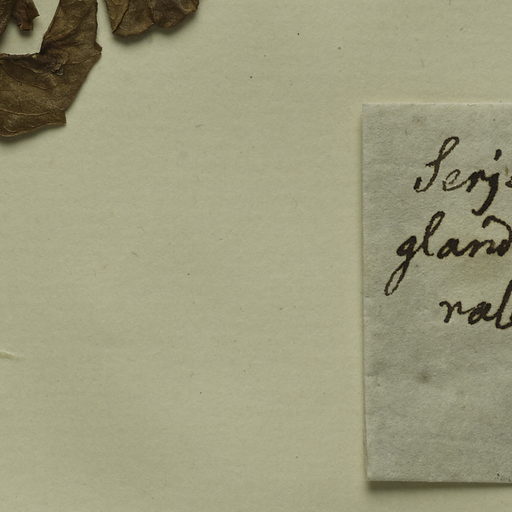 Serj
gland
rab